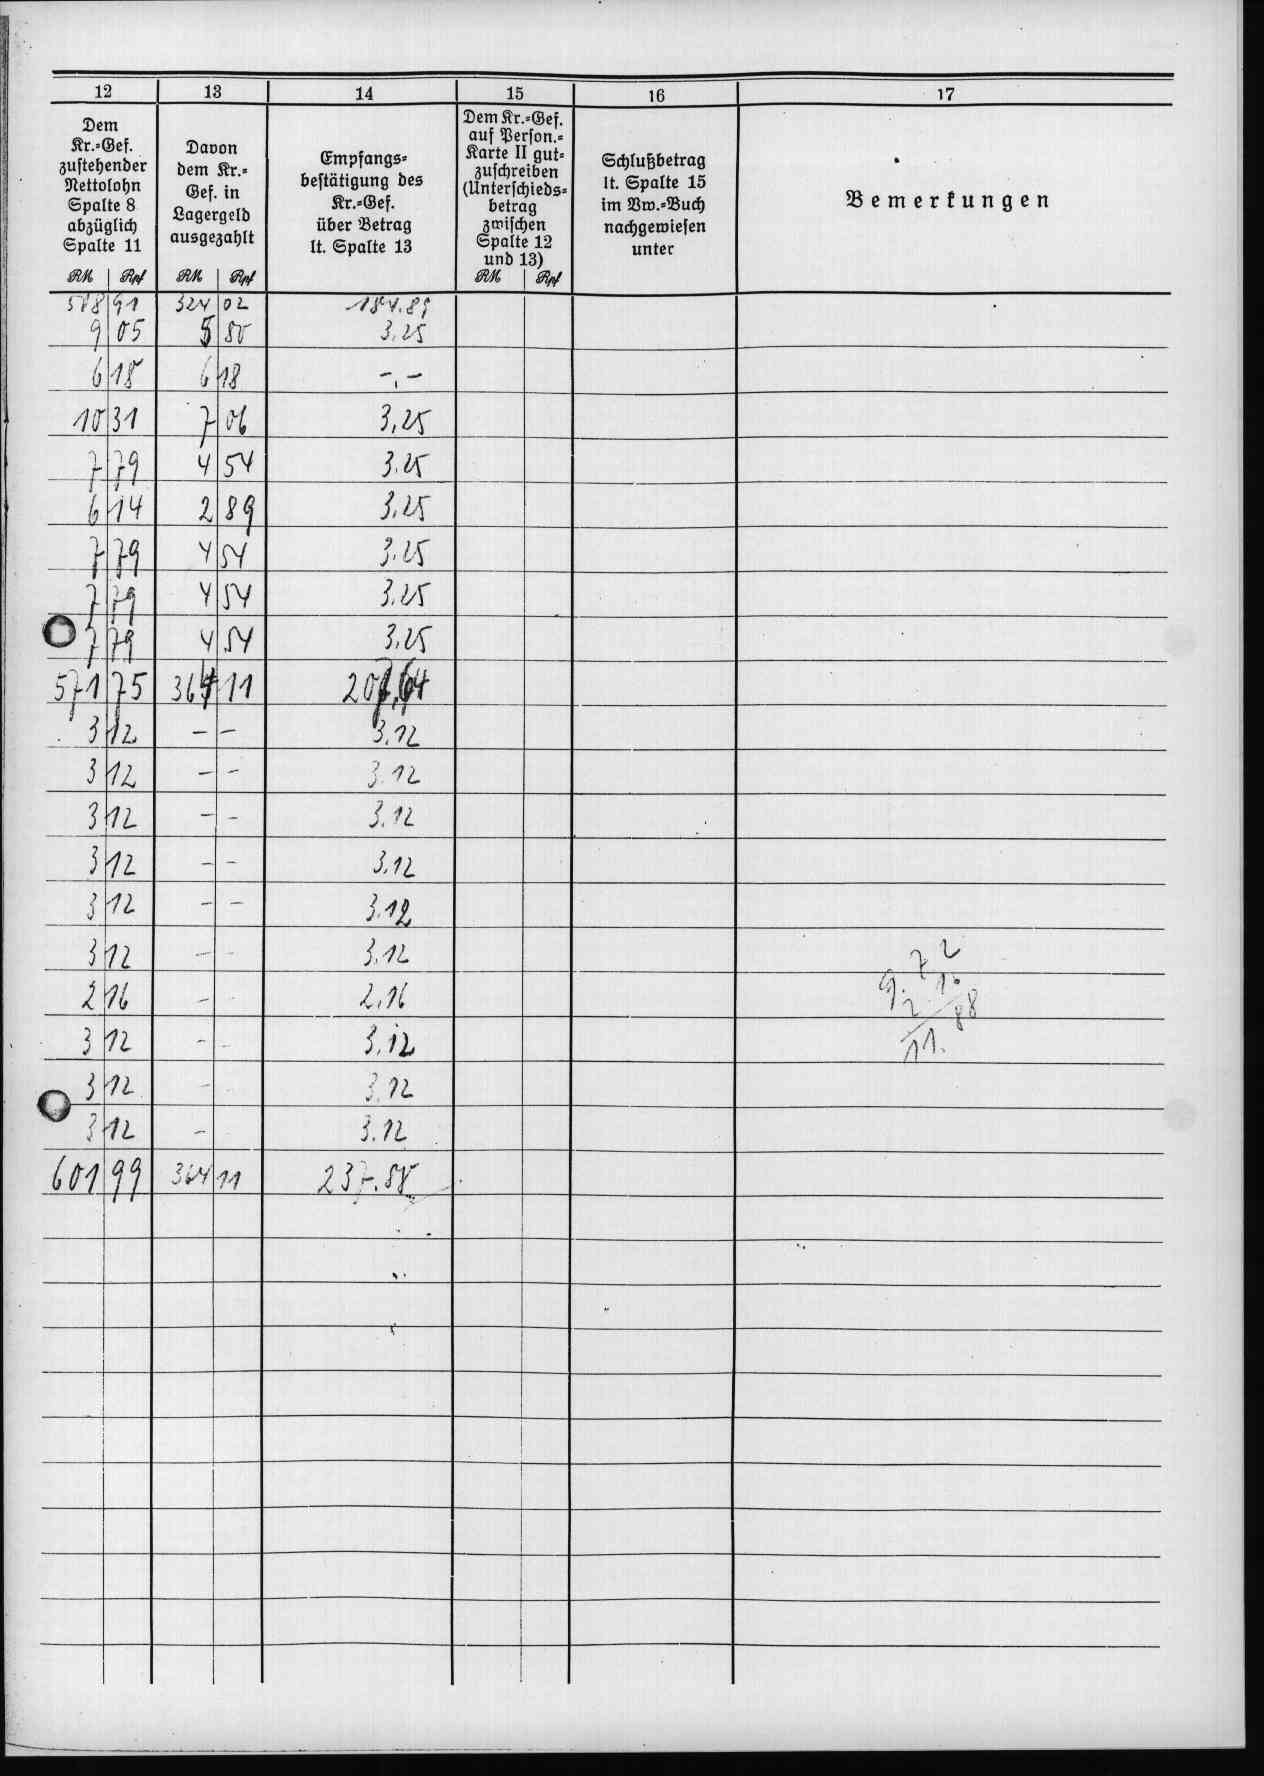 12 13 14 15 16 17
Dem
Kr.=Gef.
zustehender
Nettolohn
Spalte 8
abzüglich
Spalte 11
RM Rpf
Davon
dem Kr.=
Gef. in
Lagergeld
ausgezahlt
RM Rpf
Empfangs=
bestätigung des
Kr.=Gef.
über Betrag
lt. Spalte 13
Dem Kr.=Gef.
auf Person.=
Karte II gut=
zuschreiben
(Unterschieds=
betrag
zwischen
Spalte 12
und 13)
RM Rpf
Schlußbetrag
lt. Spalte 15
im Vw.=Buch
nachgewiesen
unter
Bemerkungen
508 91 324 02 184.89
9 05 5 80 3.25
6 18 6 18 -.-
10 31 7 06 3,25
7 79 4 54 3.25
6 14 2 89 3.25
7 79 4 54 3.25
7 79 4 54 3.25
7 79 4 54 3.25
571 75 364 11 207,64
3 12 - - 3.12
3 12 - - 3.12
3 12 - - 3.12
3 12 - - 3.12
3 12 - - 3.12
3 12 - - 3.12
2 16 - - 2.16
3 12 - - 3.12
3 12 - - 3.12
3 12 - 3.12
601 99 364 11 237.88
9.72
2.16
11.88